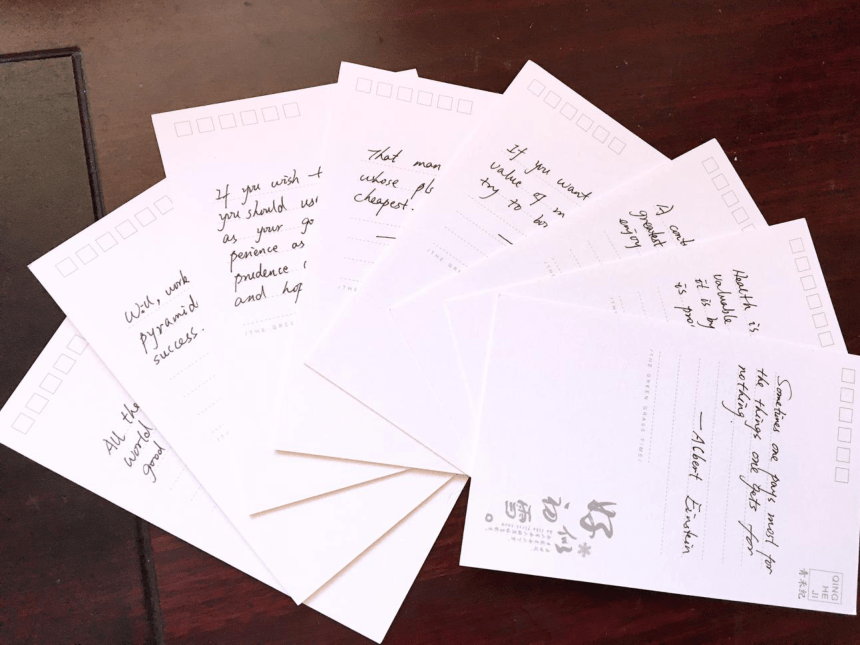 All the
world
good
Will, work
pyramid
success.
If you wish t
you should us
as your go
perience as
prudence
and hop
(THE GREE
That man
whose pl
cheapest.
—
(THE GR
If you want
value of m
try to bo
—
A cont
greatest
enjoy
Health is
valuable
it is by
is pro
Sometimes one pays most for
the things one gets for
nothing.
—Albert Einstein
(THE GREEN GRASS TIME)
好
似
初雪。
QING
HE
JI
青禾纪